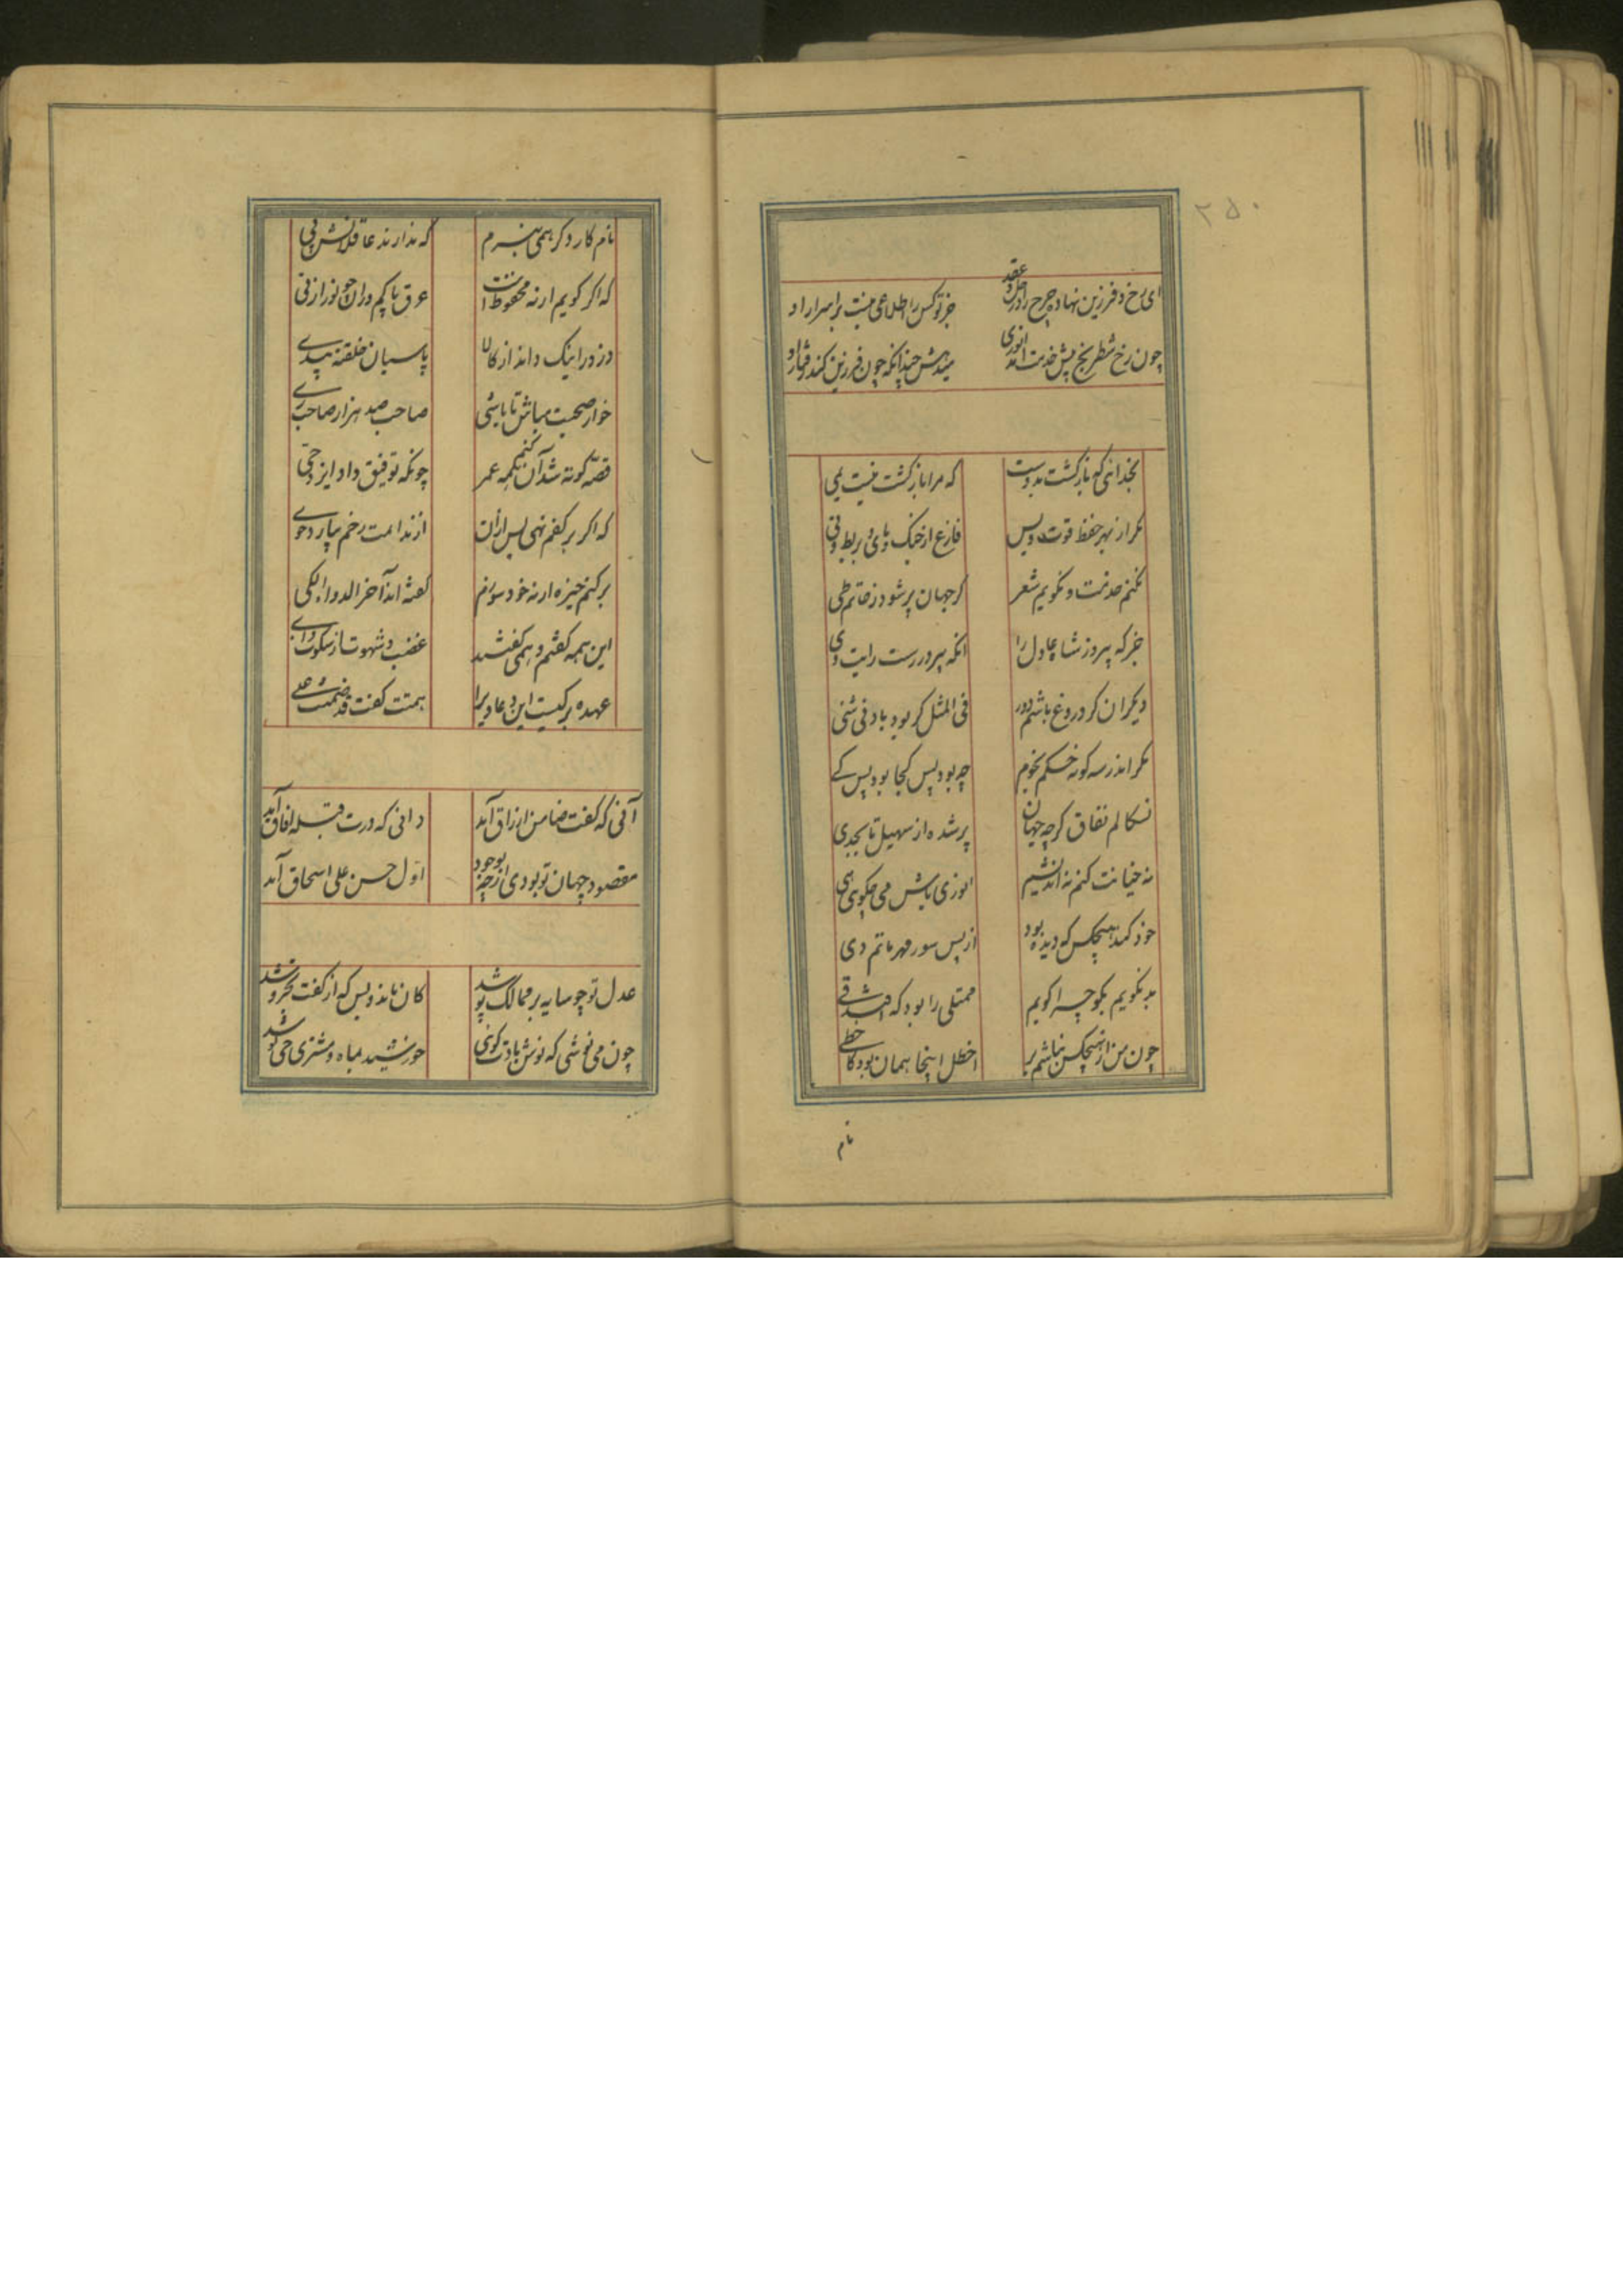 ۲۵۰
ای رخ و فرزین نهاده چرخ را در حل و عقد
جز تو کس را اطلاعی نیست بر اسرار او
چون رخ شطرنج پیش خدمت آمد انوری
که مرا باز گشت نیست بمی
مگر از بهر حفظ قوت و بس
فارغ از چنگ و نای و بربط و نی
نکنم خدمت و نگویم شعر
گر جهان پر شود ز حاتم طی
جز که پیروز شاه عادل را
انکه پیروزرست رایت وی
دیگران گر دروغ باشم دور
فی المثل گر بود بادنی شئی
مگر اندر سه گونه خسکم نخوم
چه بود پس کجا بود پس کے
نسکالم نفاق گرچه جهان
پر شده از سهیل تا بجدی
نه خیانت کنم نه اندیشم
انوری باش می چگوی هی
خود کند هیچکس که دیده بود
از پس سور مهر ماتم دی
بد نگویم نکو چرا گویم
ممتلی را بود که افتد قی
چون من از هیچکس نباشم پر
اخطل اینجا همان بود کاخطی
نام
نام کار دگر همی نبرم
که ندارند عاقلانش پی
که اگر گویم ارنه محفوظ است
عرق پاکم دران چو نور از فی
دزد را نیک داند از کالا
پاسبان خلقته بیدی
خوار صحبت مباش تا باشی
صاحب صد هزار صاحب ری
قصه کوته شد آن کنم همه عمر
چونکه توفیق داد ایزد حی
که اگر بر کفم نهی پس ازان
از ندامت رخم نیارد خوی
برکنم خیزه ارنه خود سوزم
گفته اند آخر الدواء الکی
این همه گفتم و همی گفتند
غضب و شهوت از سکوت ای
عهده بر کیست این دعاوی را
همت گفت قد ضمنت علی
آنی که کفت ضامن ارزاق آمد
دانی که درت قبله آفاق آمد
مقصود جهان تو بودی ارچه بوجود
اول حسن علی اسحاق آمد
عدل تو چو سایه بر ممالک پوشد
کان ماند و بس که از کفت بخروشد
چون می نوشی که نوش بادت گوئی
خورشید بماه و مشتری می نوشد